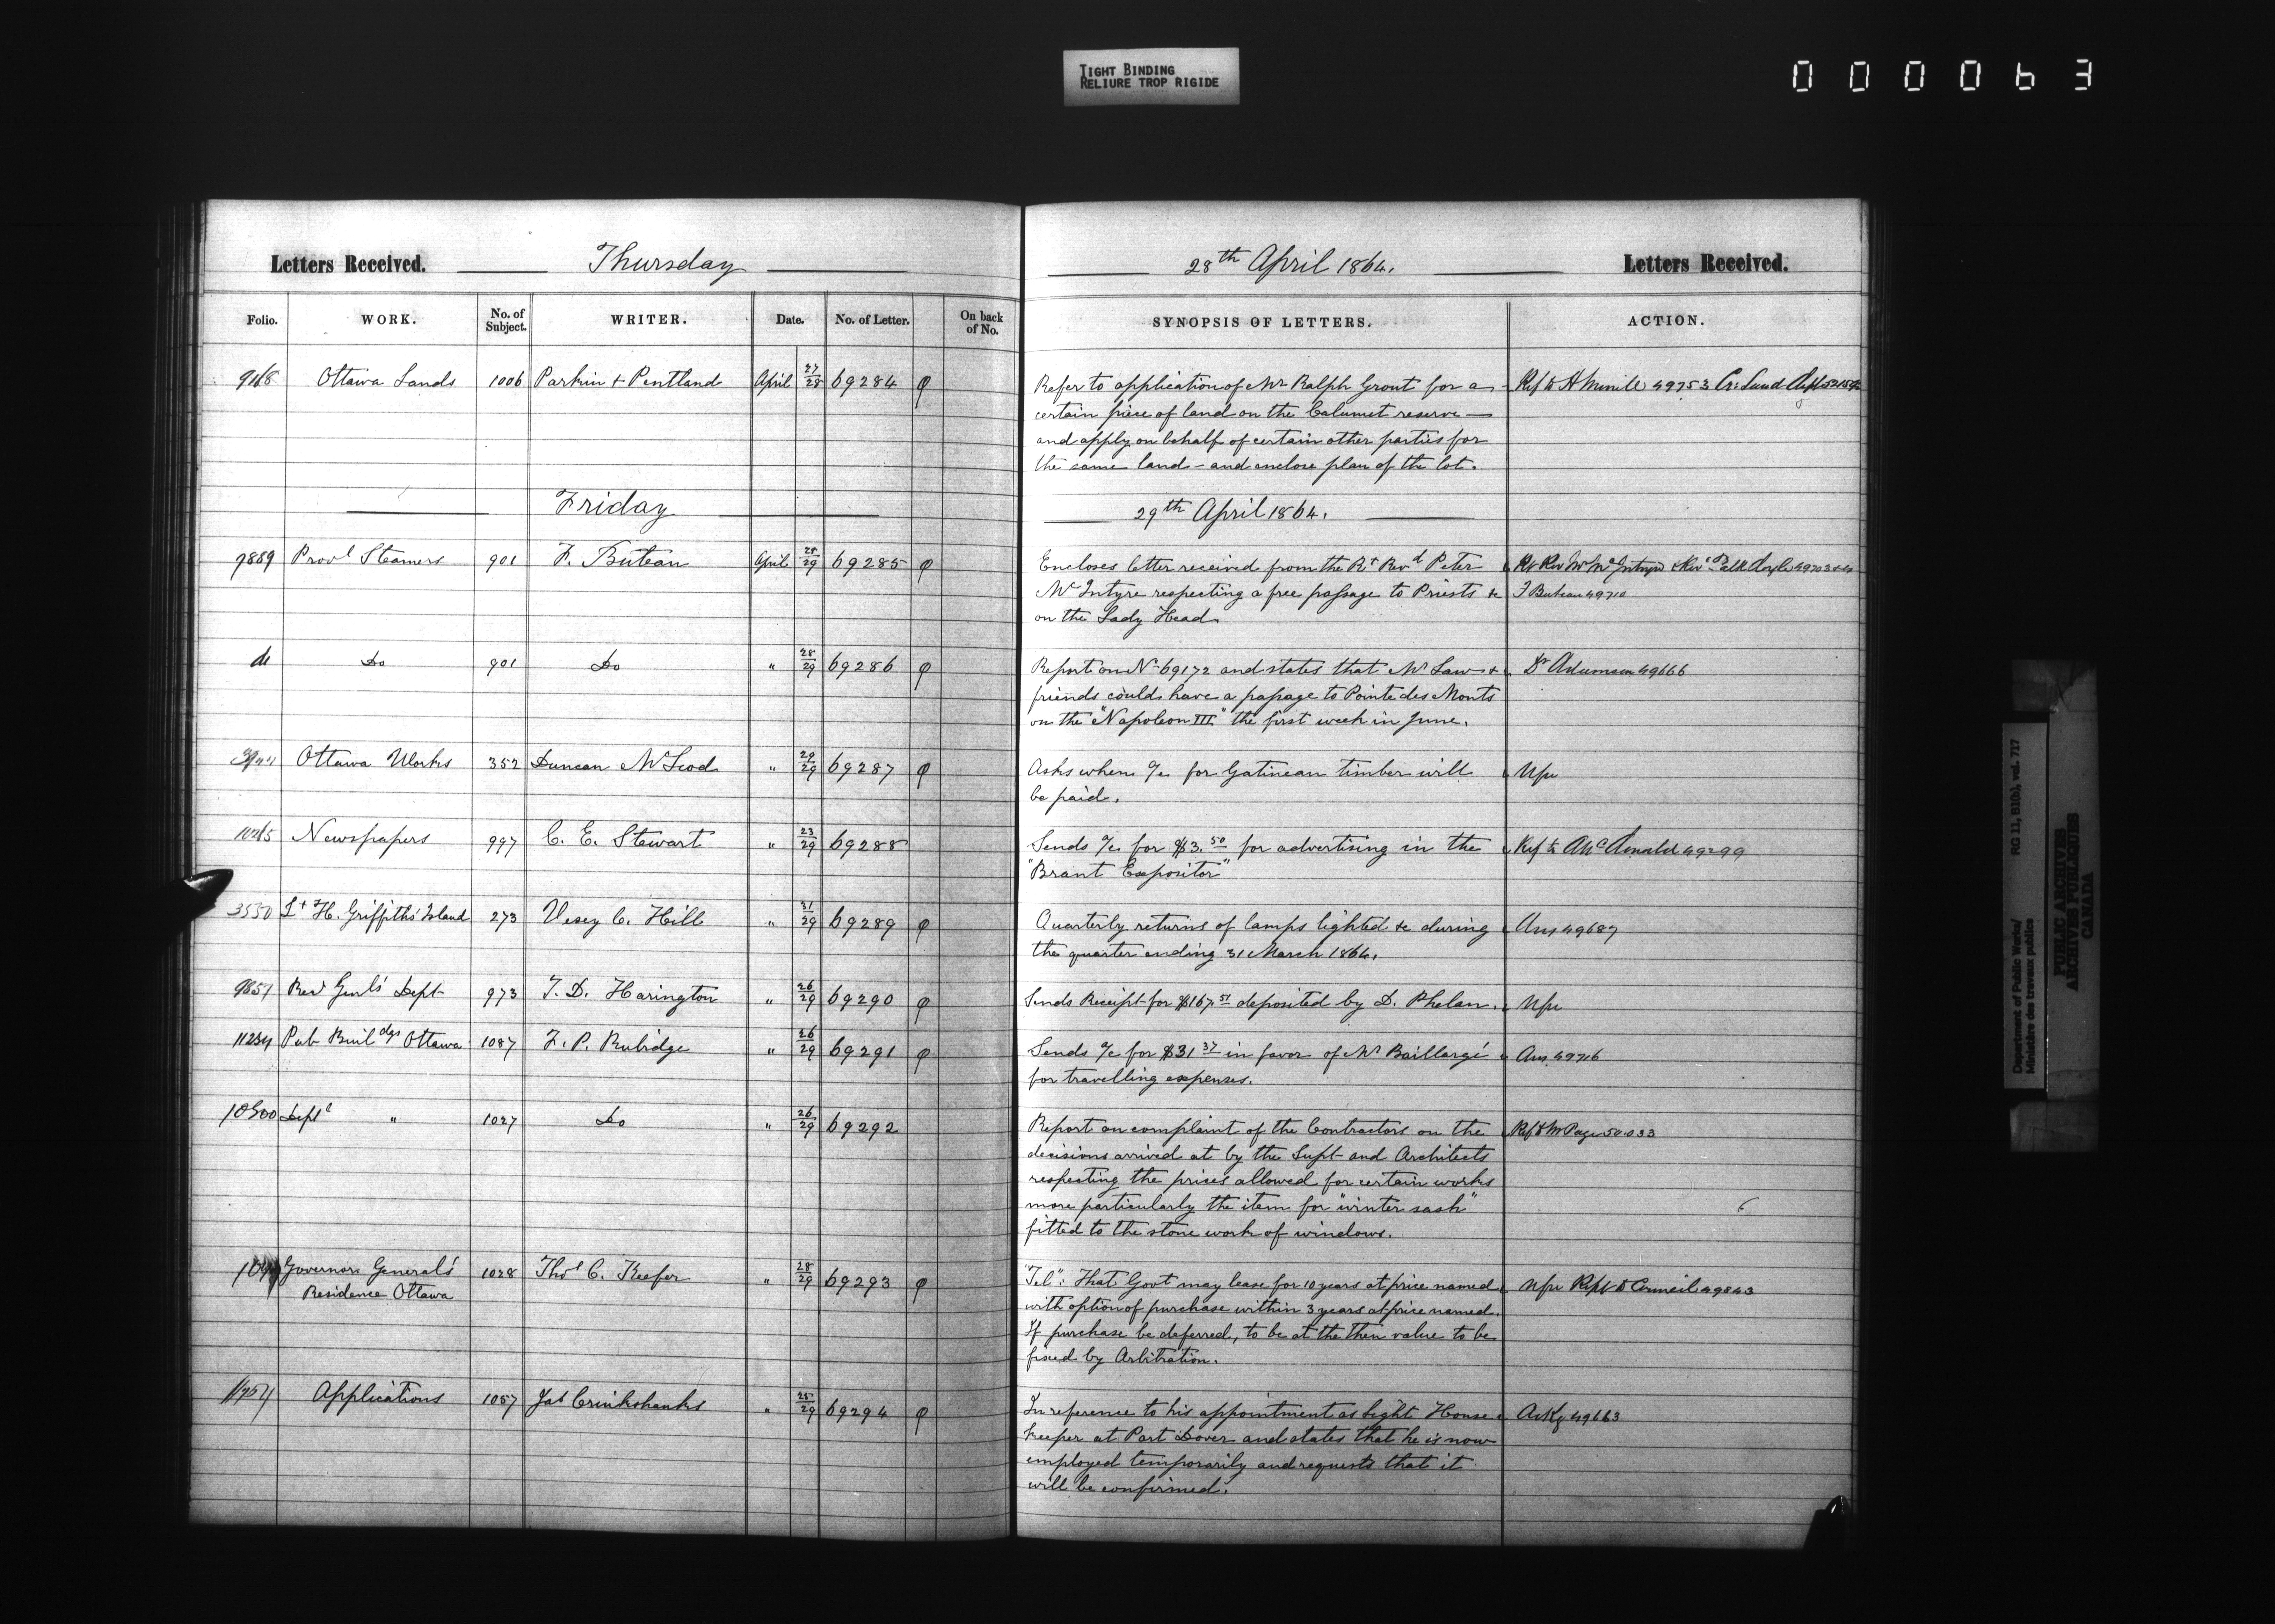 TIGHT BINDING
RELIURE TROP RIGIDE
000063
Letters Received. Thursday
Folio. WORK. No. of Subject. WRITER. Date. No. of Letter. On back of No.
Ottawa Lands 1006 Parkin + Pentland April 27/28 69284 φ
Friday
9889 Provl Steamers 901 F. Buteau April 28/29 69285 φ
do Do 901 Do " 28/29 69286 φ
Ottawa Works 352 Duncan McLeod " 29/29 69287 φ
Newspapers 997 C. E. Stewart " 23/29 69288 φ
3550 Lt H. Griffiths Island 273 Vesey C. Hill " 31/29 69289 φ
Genl's Dept 973 T. D. Harington " 26/29 69290 φ
Pub Buildgs Ottawa 1087 F. P. Rubidge " 26/29 69291 φ
" 1027 Do " 26/29 69292
Governor General's 1028 Thos C. Keefer " 28/29 69293 φ
Residence Ottawa
Applications 1057 Jas Cruikshanks " 25/29 69294 φ
28th April 1864. Letters Received.
SYNOPSIS OF LETTERS. ACTION.
Refer to application of Mr Ralph Grout for a Ref to H Merrill 49753
certain piece of land on the Calumet reserve —
and apply on behalf of certain other parties for
the same land – and enclose plan of the lot.
29th April 1864.
Encloses letter received from the Rt Revd Peter
McIntyre respecting a free passage to Priests &c F Buteau 49710
on the Lady Head.
Report on No 69172 and states that Mr Law + Dr Adamson 49666
friends could have a passage to Pointe des Monts
on the "Napoleon III" the first week in June.
Asks when a/c for Gatineau timber will Nfu
be paid.
Sends a/c for $3.50 for advertising in the Ref to
"Brant Expositor"
Quarterly returns of lamps lighted &c during Ans 49687
the quarter ending 31 March 1864.
Sends Receipt for $167.51 deposited by D. Phelan. Nfu
Sends a/c for $31 37 in favor of Mr Baillargé Ans 49716
for travelling expenses.
Report on complaint of the Contractors on the Ref to Mr Page 50033
decisions arrived at by the Supt and Architects
respecting the prices allowed for certain works
more particularly the item for "winter sash"
fitted to the stone work of windows.
"Tel": That Govt may lease for 10 years at price named Nfu Rept to Council 49843
with option of purchase within 3 years at price named.
If purchase be deferred, to be at the then value to be
fixed by Arbitration.
In reference to his appointment as Light House Ackg 49663
Keeper at Port Dover and states that he is now
employed temporarily and requests that it
will be confirmed.
RG 11, B1(b), vol. 717
Department of Public Works/
Ministère des travaux publics
PUBLIC ARCHIVES
ARCHIVES PUBLIQUES
CANADA